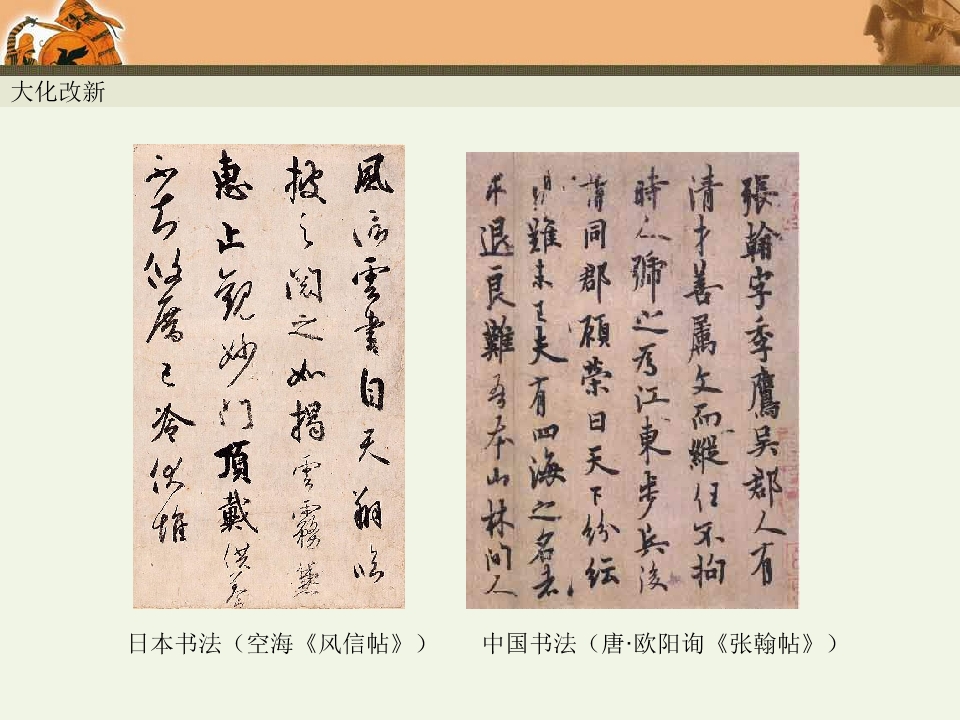 大化改新
風信雲書自天翔臨
披之閱之如揭雲霧兼
惠止觀妙門頂戴供養
不知攸厝已冷伏惟
張翰字季鷹吳郡人有
清才善屬文而縱任不拘
時人號之為江東步兵後
謂同郡顧榮曰天下紛紜
難未已夫有四海之名者
求退良難吾本山林間人
日本书法（空海《风信帖》）
中国书法（唐·欧阳询《张翰帖》）